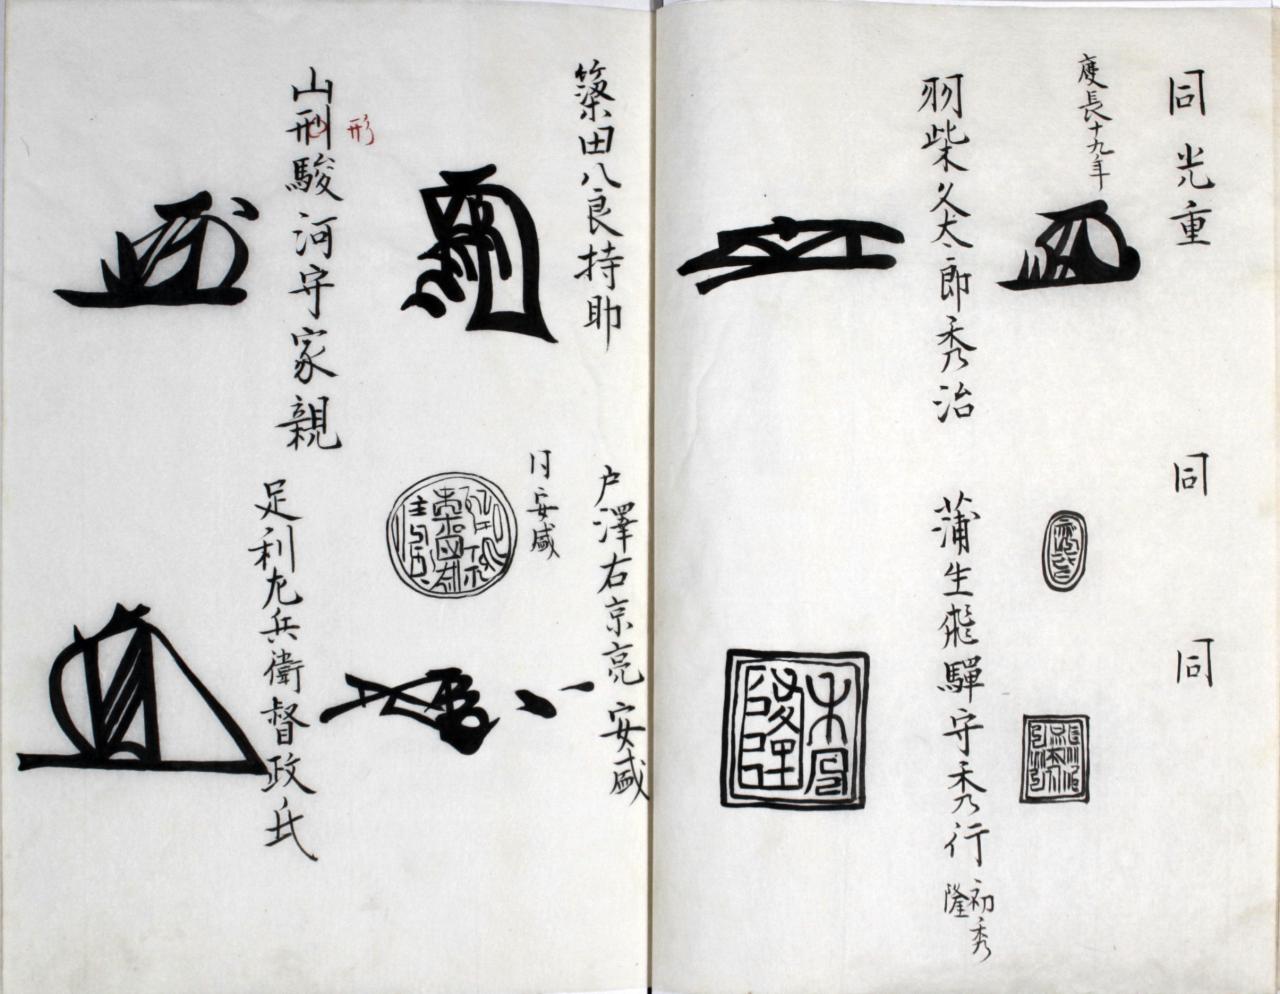 同光重
慶長十九年
同
同
羽柴久太郎秀治
蒲生飛騨守秀行
初秀
隆
簗田八良持助
戸澤右京亮安盛
同安盛
山刑駿河守家親
形
足利左兵衛督政氏